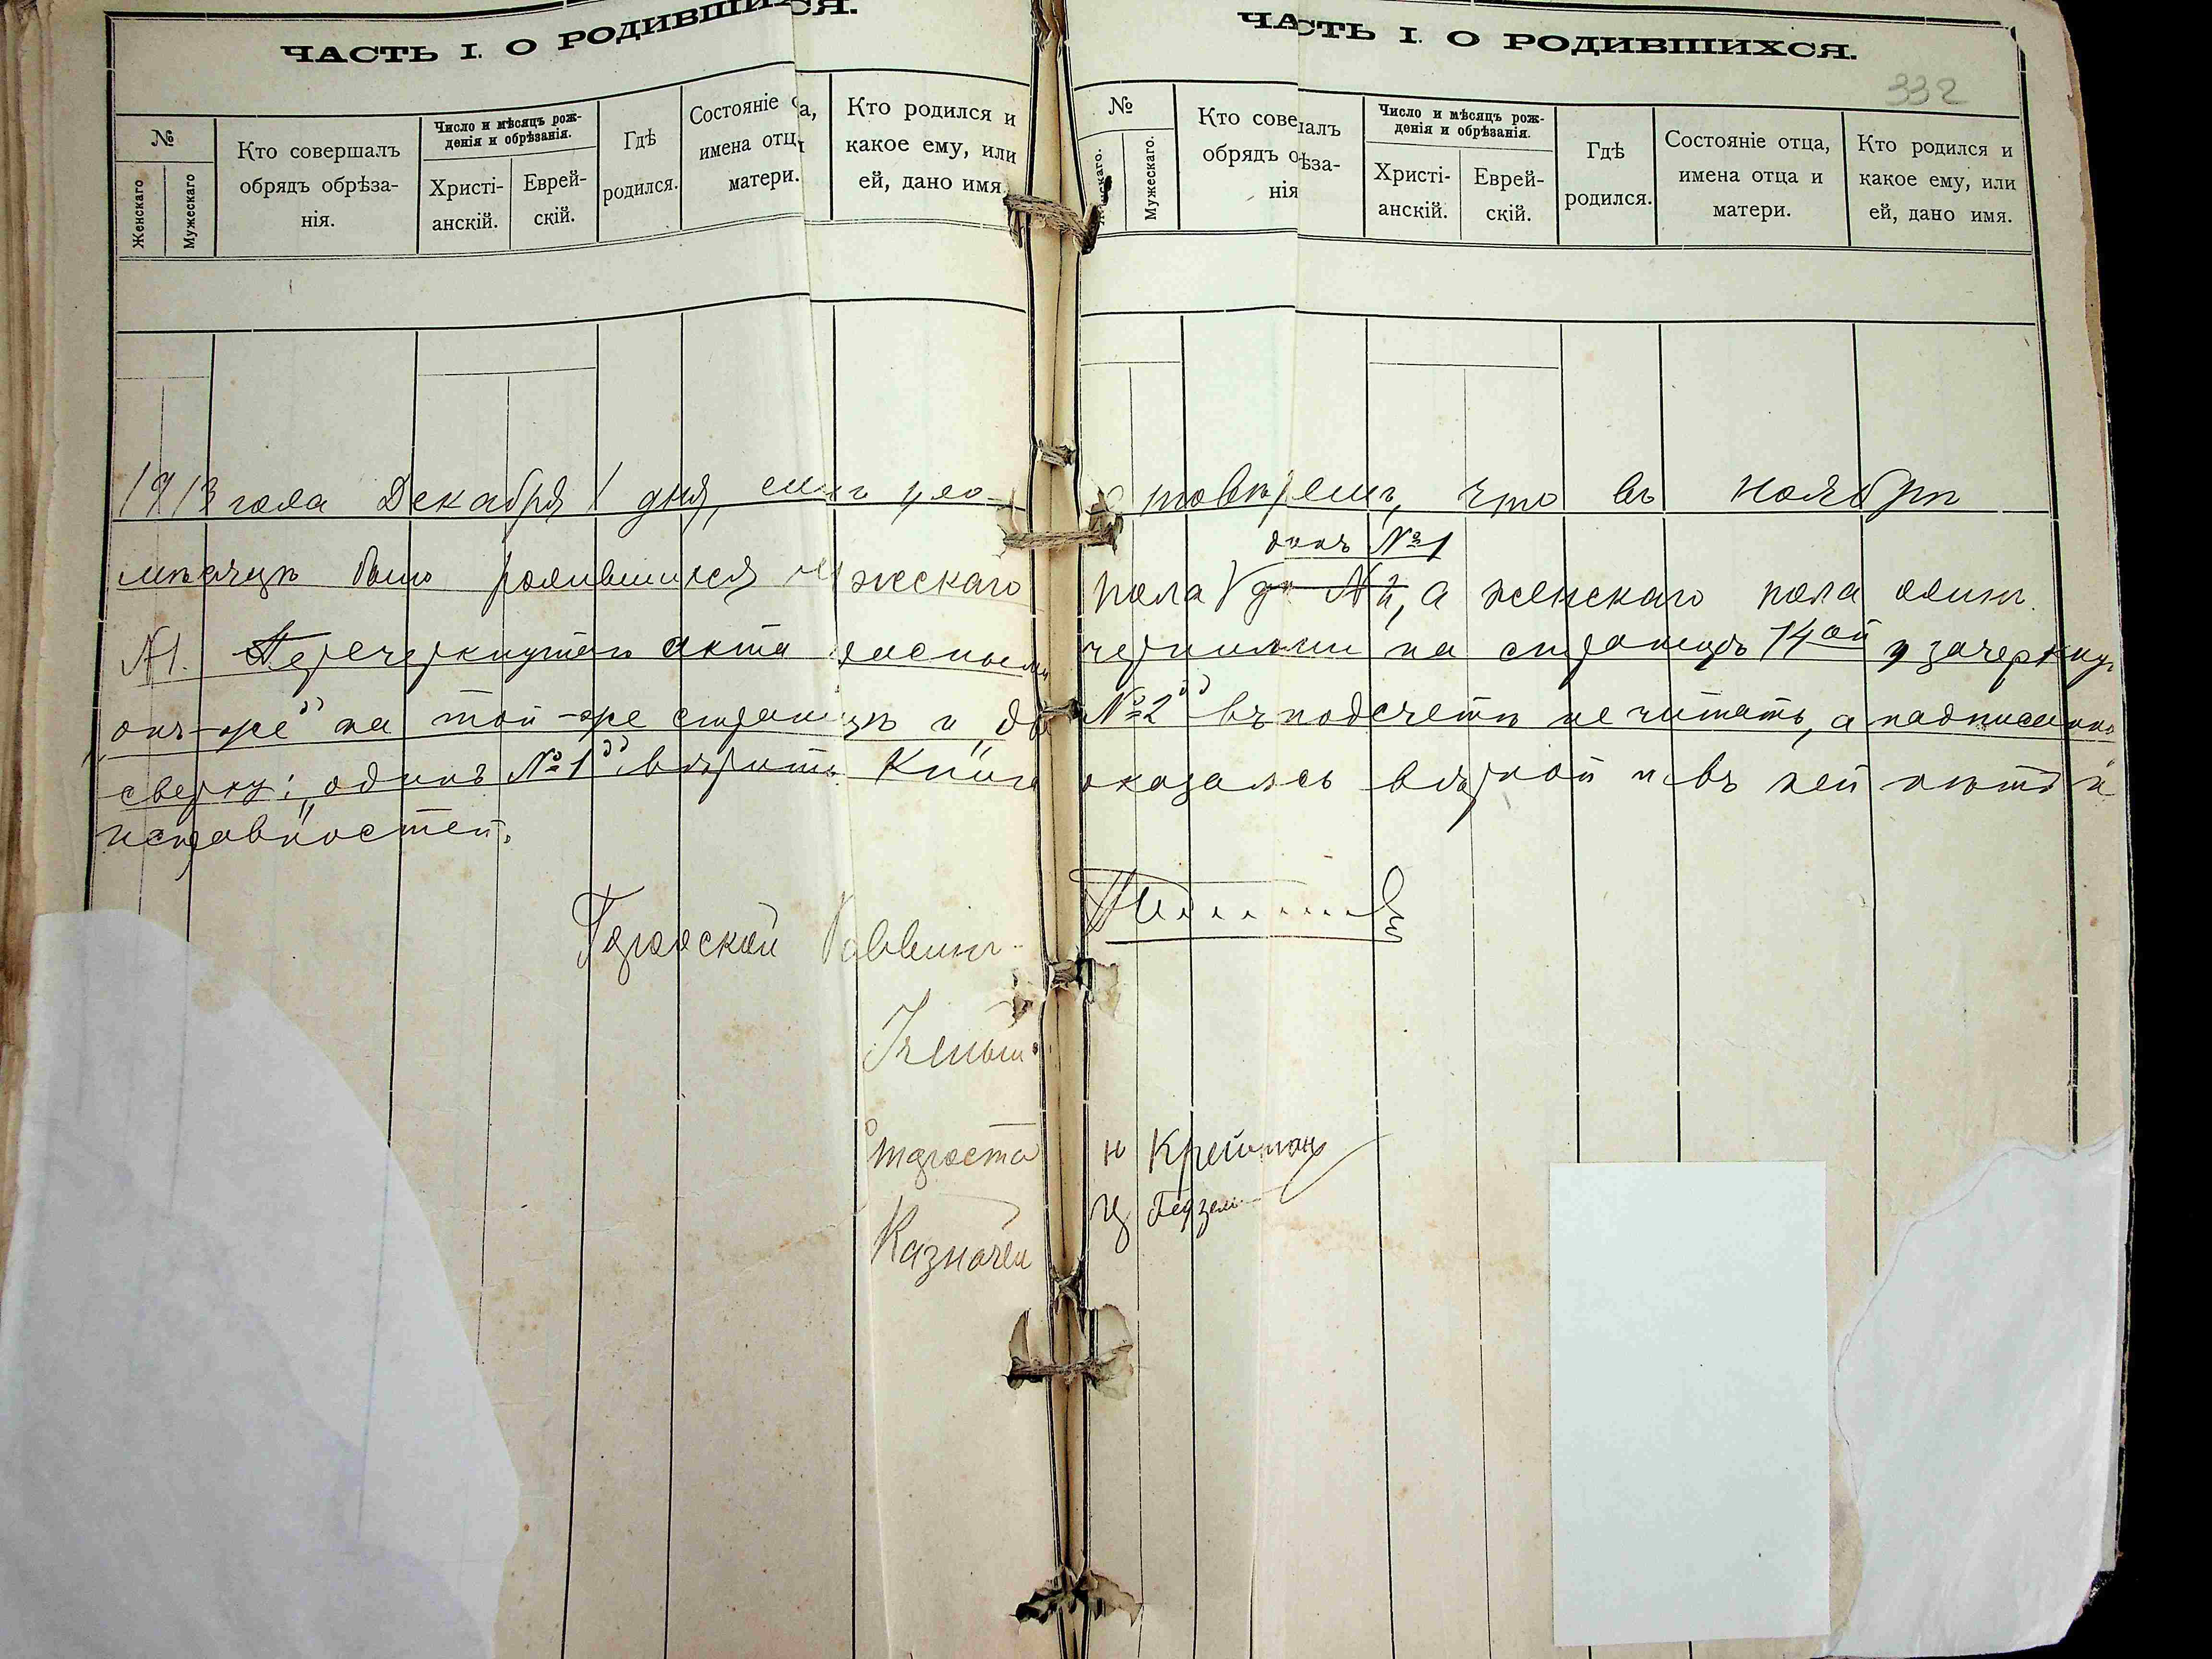 ЧАСТЬ I. О РОДИВШИХСЯ.
№
Женскаго
Мужескаго
Кто совершалъ
обрядъ обрѣза-
нія.
Число и мѣсяцъ рож-
денія и обрѣзанія.
Христі-
анскій.
Еврей-
скій.
Гдѣ
родился.
Состояніе а,
имена отц
матери.
Кто родился и
какое ему, или
ей, дано имя.
ЧАСТЬ I. О РОДИВШИХСЯ.
332
№
Женскаго.
Мужескаго.
Кто совершалъ
обрядъ обрѣза-
нія
Число и мѣсяцъ рож-
денія и обрѣзанія.
Христі-
анскій.
Еврей-
скій.
Гдѣ
родился.
Состояніе отца,
имена отца и
матери.
Кто родился и
какое ему, или
ей, дано имя.
1913 года Декабря 1 дня, симъ удостовѣряемъ, что въ Ноябрѣ
одинъ №1
мѣсяцѣ было родившихся мужескаго пола два №2, а женскаго пола одинъ
№1. Перечеркнутаго акта красными чернилами на страницѣ 14ой и зачеркну
„онъ-же" на той-же страницѣ и „два №2" въ подсчетѣ не читать, а надписанно
сверху: „одинъ №1" вѣрить. Книга оказалась вѣрной и въ ней нѣтъ не
исправностей.
Городской Раввинъ
Ученый
Староста Н Крейман
Казначей Ц Герзель